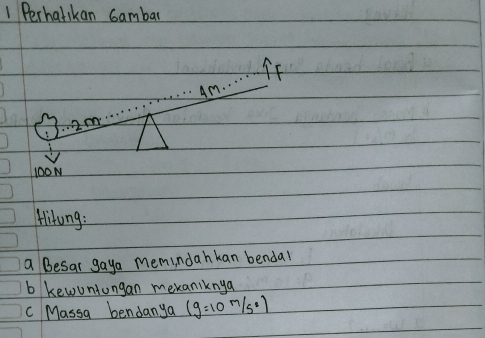 1 Perhatikan Gambar
F
4m
2m
100N
Hitung:
a Besar gaya memindahkan benda!
b kewuntungan mekaniknya
c Massa bendanya (g=10 m/s²)